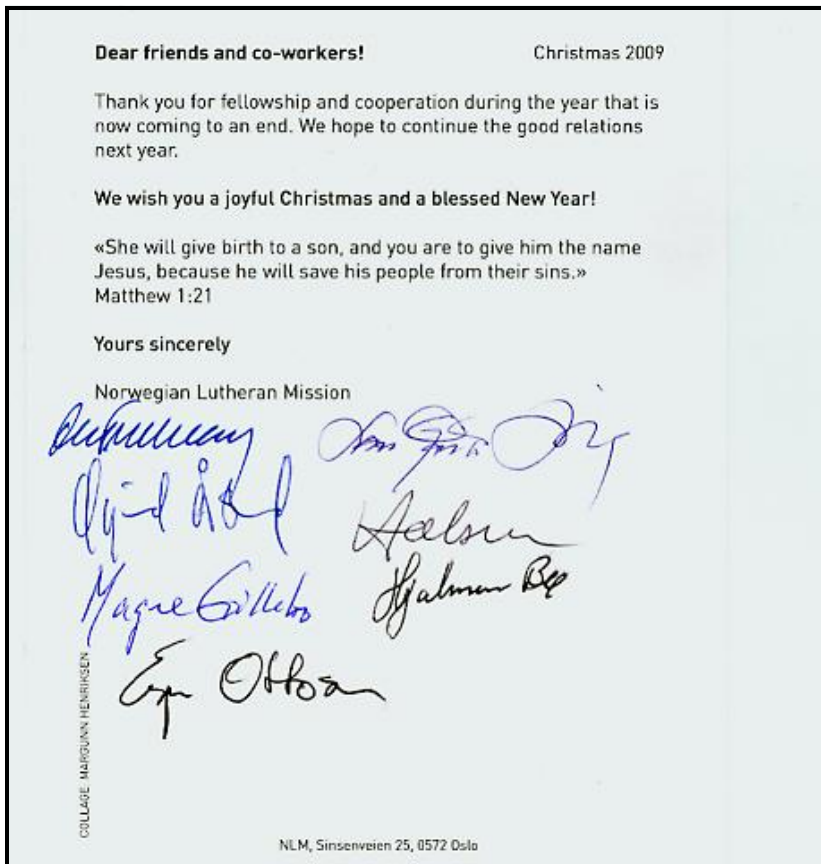 Dear friends and co-workers! Christmas 2009
Thank you for fellowship and cooperation during the year that is
now coming to an end. We hope to continue the good relations
next year.
We wish you a joyful Christmas and a blessed New Year!
«She will give birth to a son, and you are to give him the name
Jesus, because he will save his people from their sins.»
Matthew 1:21
Yours sincerely
Norwegian Lutheran Mission
Øyvind Åsland
Magne Gillebo
Hjalmar Bø
Espen Ottosen
COLLAGE MARGUNN HENRIKSEN
NLM, Sinsenveien 25, 0572 Oslo